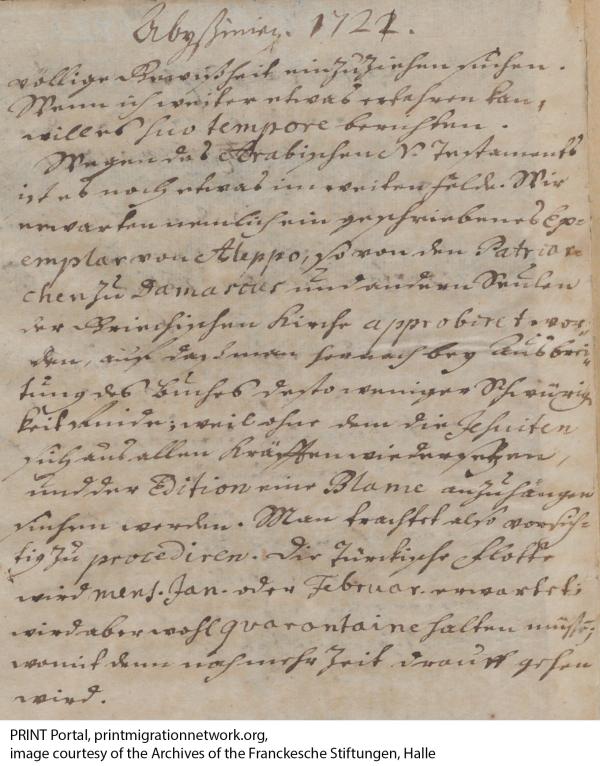 Abyßinien. 1721.
völlige Gewißheit einzuziehen suchen.
Wenn ich weiter etwas erfahren kan,
will es suo tempore berichten.
Wegen des Arabischen N. Testaments
ist es noch etwas im weiten felde. Wir
erwarten nemlich ein geschriebenes Ex-
emplar von Aleppo, so von den Patriar-
chen zu Damascus und andern Seulen
der Griechischen Kirche approbiret wor-
den, auf daß man hernach bey Ausbrei-
tung des Buches desto weniger Schwürig-
keit finde; weil ohne dem die Jesuiten
sich aus allen Kräfften wiedersetzen,
und der Edition eine Blame anzuhängen
suchen werden. Man trachtet also vorsich-
tig zu procediren. Die Türckische Flotte
wird mens. Jan. oder Februar. erwartet;
wird aber wohl quarantaine halten müßen;
womit denn noch mehr Zeit drauff gehen
wird.
PRINT Portal, printmigrationnetwork.org,
image courtesy of the Archives of the Franckesche Stiftungen, Halle